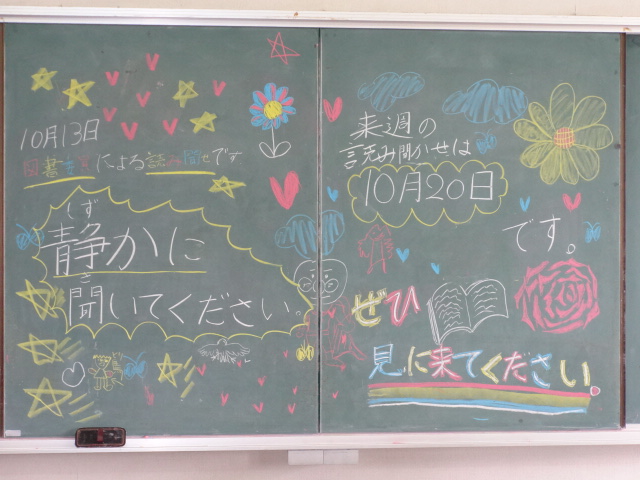 10月13日
図書委員による読み聞かせです
しず
静かに
き
聞いてください。
来週の
読み聞かせは
10月20日
です。
ぜひ
見に来てください!